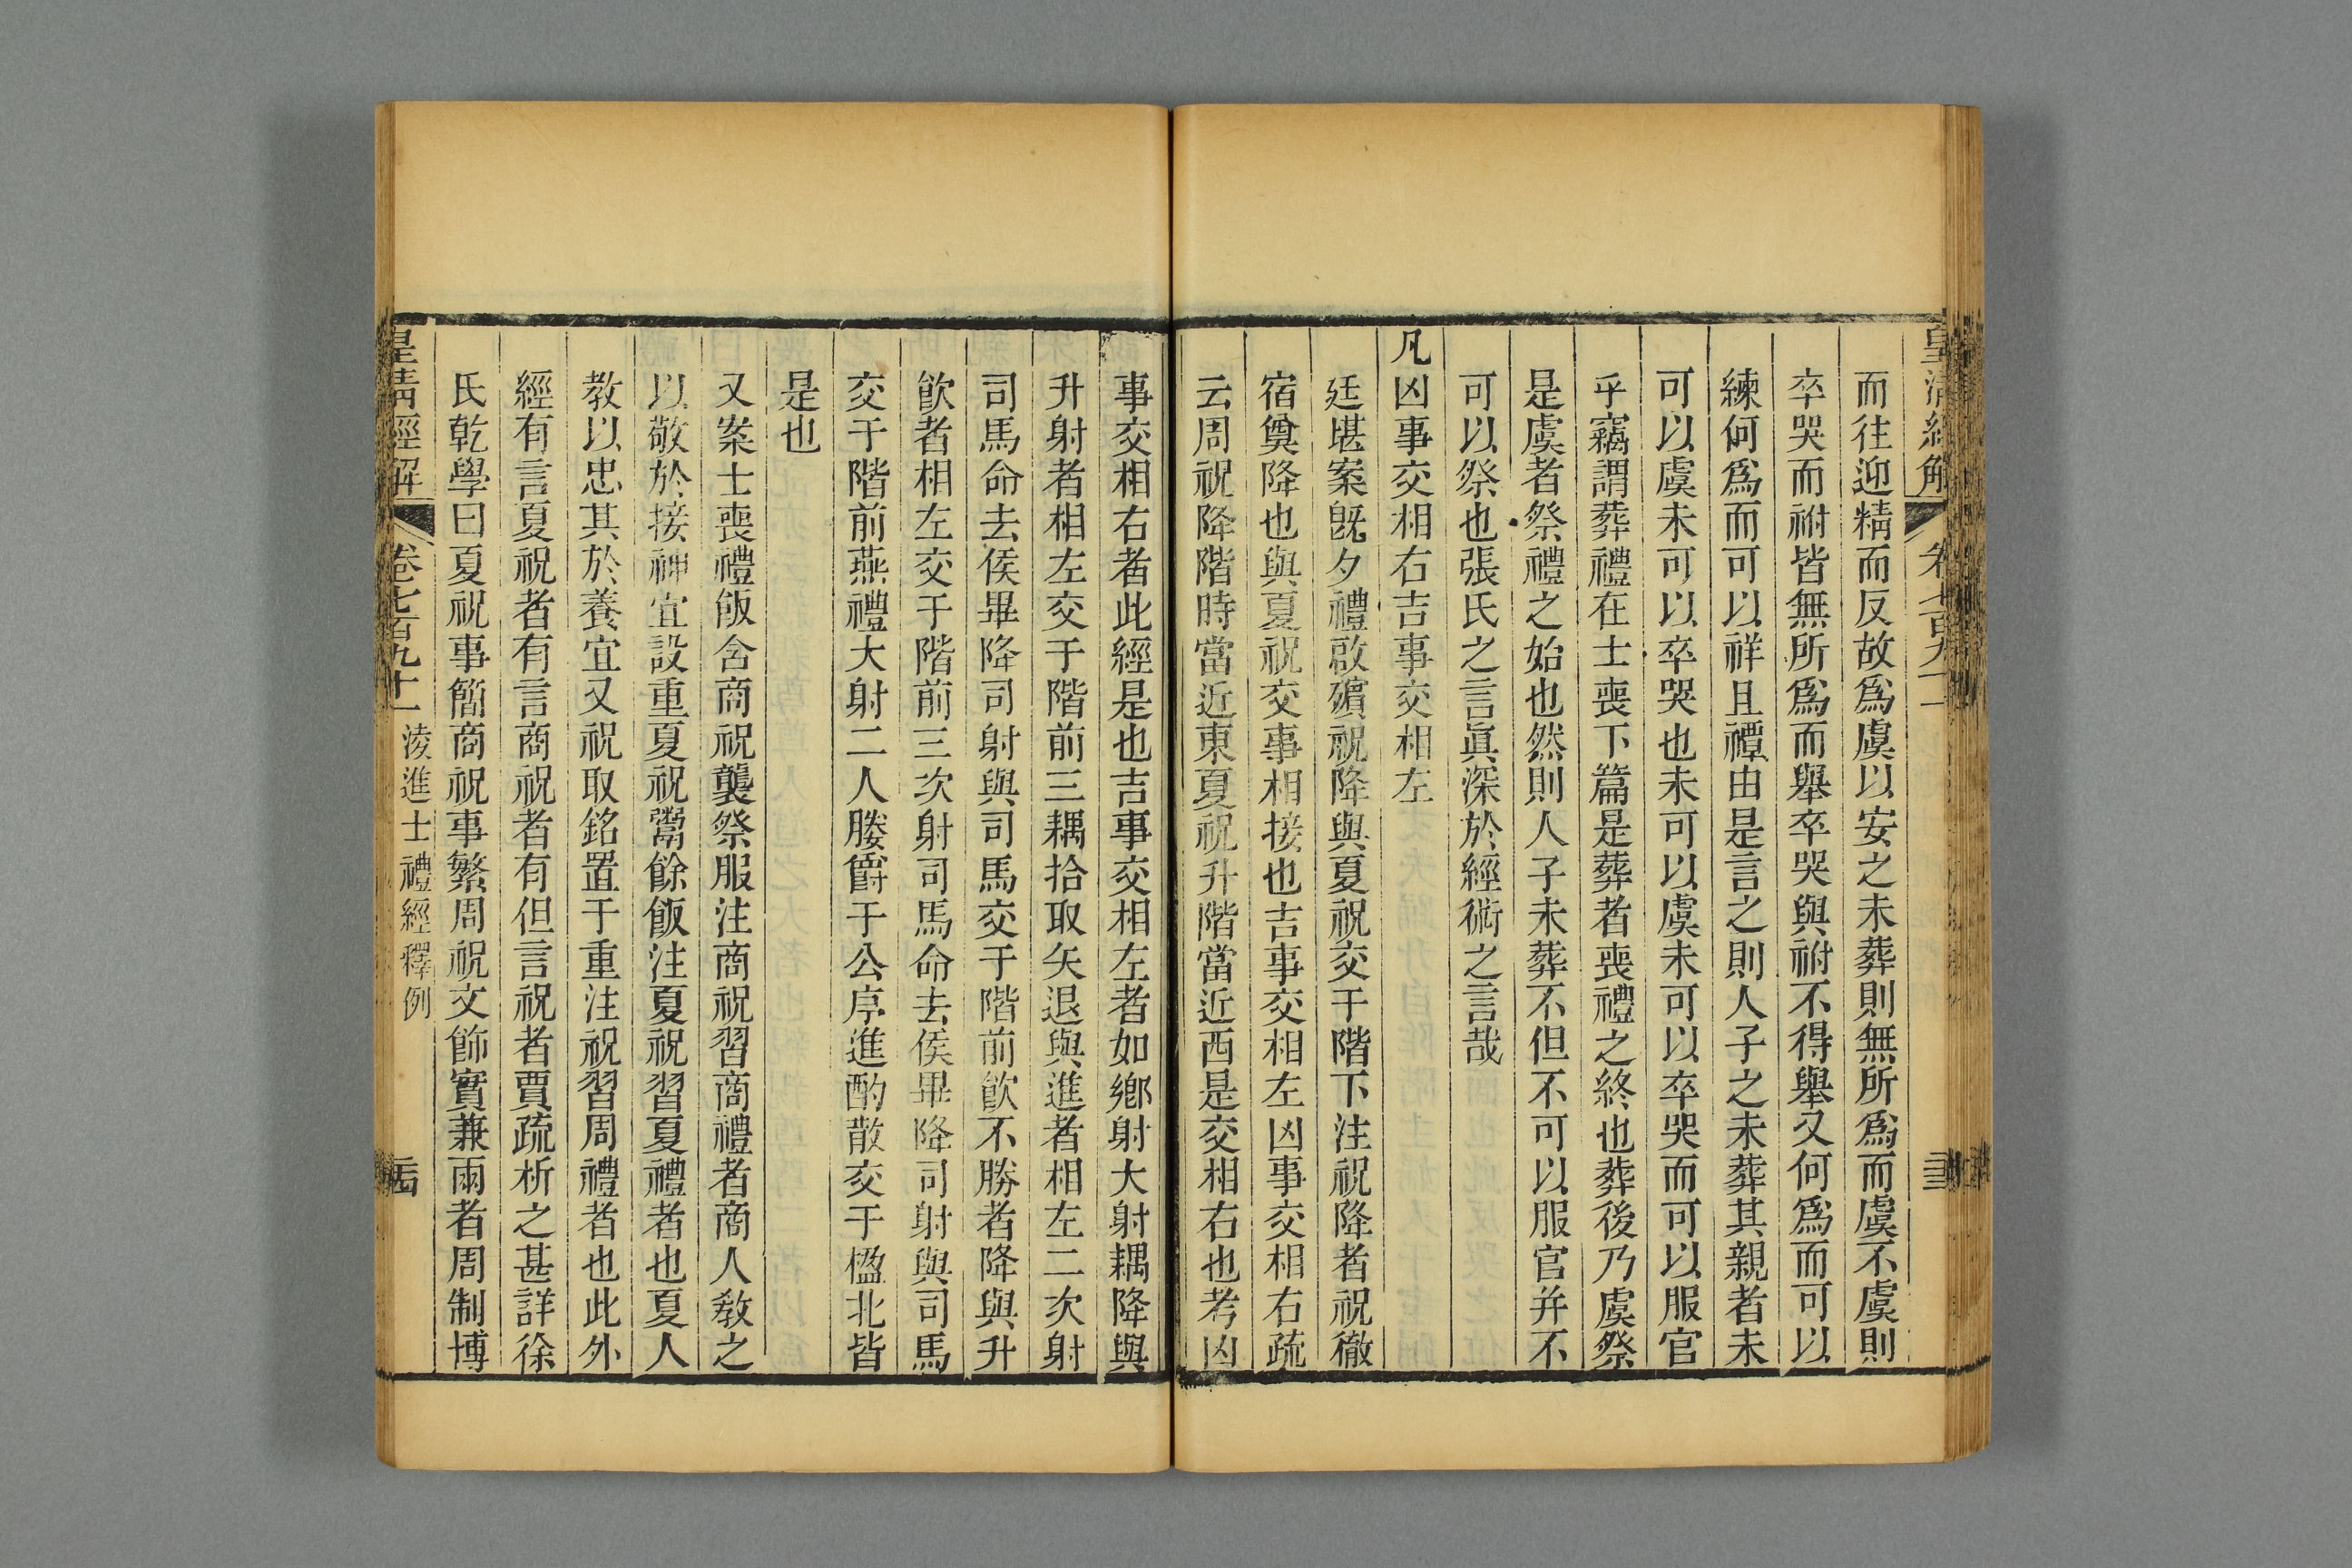 皇清經解
卷七百九十一
而往迎精而反故爲虞以安之未葬則無所爲而虞不虞則
卒哭而祔皆無所爲而舉卒哭與祔不得舉又何爲而可以
練何爲而可以祥且禫由是言之則人子之未葬其親者未
可以虞未可以卒哭也未可以虞未可以卒哭而可以服官
乎竊謂葬禮在士喪下篇是葬者喪禮之終也葬後乃虞祭
是虞者祭禮之始也然則人子未葬不但不可以服官并不
可以祭也張氏之言眞深於經術之言哉
凡凶事交相右吉事交相左
廷堪案旣夕禮啟殯祝降與夏祝交于階下注祝降者祝徹
宿奠降也與夏祝交事相接也吉事交相左凶事交相右疏
云周祝降階時當近東夏祝升階當近西是交相右也考凶
事交相右者此經是也吉事交相左者如鄉射大射耦降與
升射者相左交于階前三耦拾取矢退與進者相左二次射
司馬命去侯畢降司射與司馬交于階前飮不勝者降與升
飮者相左交于階前三次射司馬命去侯畢降司射與司馬
交于階前燕禮大射二人媵爵于公序進酌散交于楹北皆
是也
又案士喪禮飯含商祝襲祭服注商祝祝習商禮者商人敎之
以敬於接神宜設重夏祝鬻餘飯注夏祝祝習夏禮者也夏人
教以忠其於養宜又祝取銘置于重注祝習周禮者也此外
經有言夏祝者有言商祝者有但言祝者賈疏析之甚詳徐
氏乾學曰夏祝事簡商祝事繁周祝文飾實兼兩者周制博
皇清經解
卷七百九十一
淩進士禮經釋例